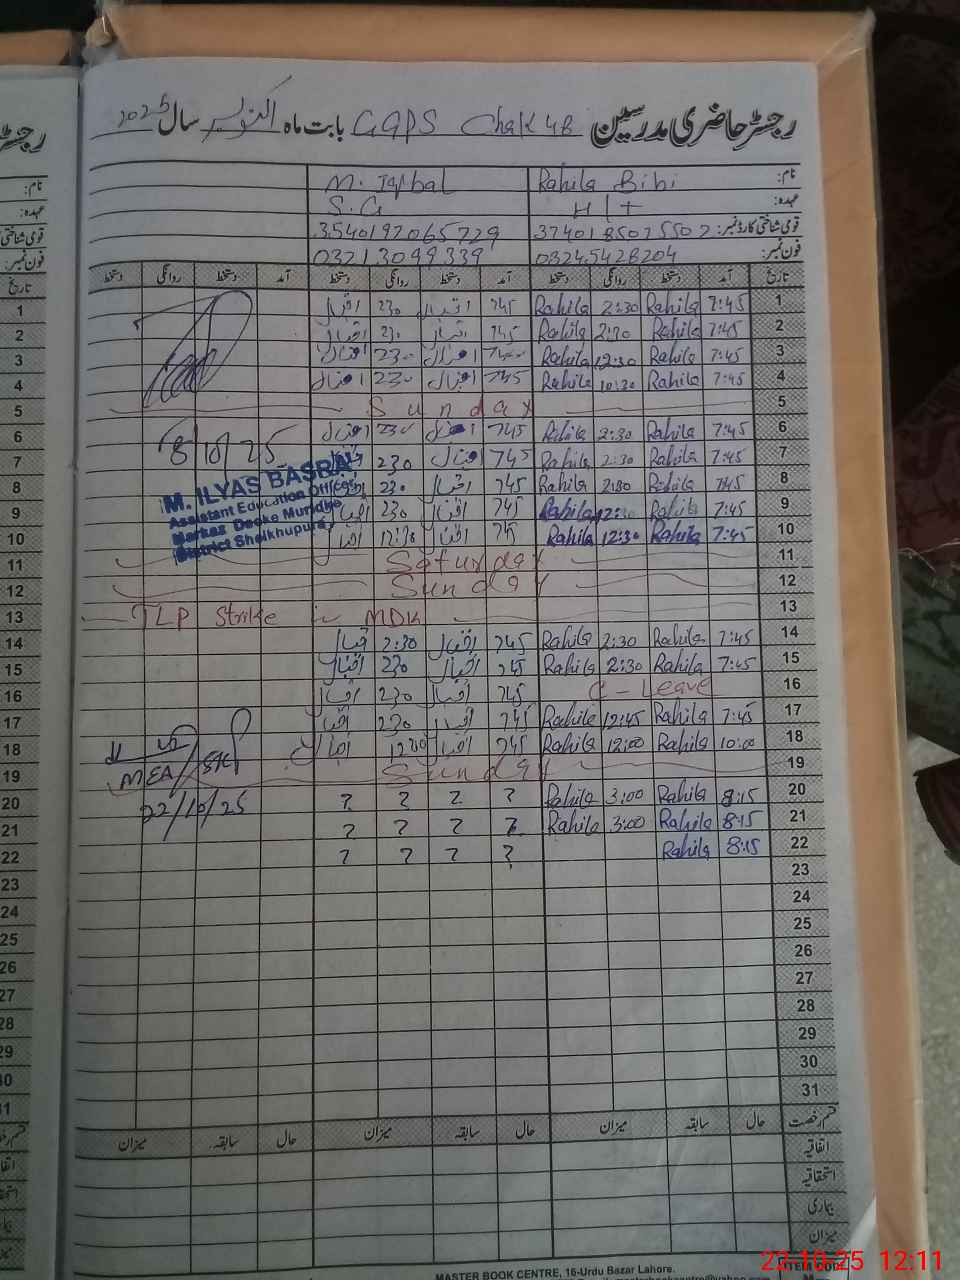 رجسٹر حاضری مدرسین GGPS Chak 4B بابت ماہ اکتوبر سال 2025
نام: Rahila Bibi M. Iqbal
عہدہ: S.G
قومی شناختی کارڈ نمبر: 3740185075502 3540197065729
فون نمبر: 03245428204 03213099339
تاریخ آمد دستخط روانگی دستخط آمد دستخط روانگی دستخط آمد دستخط روانگی دستخط
1 7:45 Rahila 2:30 Rahila 745 اقبال 230 اقبال
2 7:45 Rahila 2:30 Rahila 745 اقبال 230 اقبال
3 7:45 Rahila 12:30 Rahila اقبال 230 اقبال
4 7:45 Rahila 10:30 Rahila 745 اقبال 230 اقبال
5 Sunday
6 7:45 Rahila 2:30 Rahila 745 اقبال 230 اقبال
7 7:45 Rahila 2:30 Rahila 745 اقبال 230
8 7:45 Rahila 2:30 Rahila 745 اقبال 230
9 7:45 Rahila 12:30 Rahila 745 اقبال 230 اقبال
10 7:45 Rahila 12:30 Rahila 745 اقبال اقبال
8/10/25
M. ILYAS BASRA
Assistant Education Officer
Markaz Deoke Muridke
District Sheikhupura
11 Saturday
12 Sunday
13 TLP Strike MDK
14 7:45 Rahila 2:30 Rahila 745 اقبال 2:30 اقبال
15 7:45 Rahila 2:30 Rahila 745 اقبال 230 اقبال
16 C-Leave 745 اقبال 230 اقبال
17 7:45 Rahila 12:45 Rahila 745 اقبال 230 اقبال
18 10:00 Rahila 12:00 Rahila 745 اقبال 1200 اقبال
19 Sunday
MEA/SKP
22/10/25
20 8:15 Rahila 3:00 Rahila ? ? ? ?
21 8:15 Rahila 3:00 Rahila ? ? ? ?
22 8:15 Rahila ? ? ? ?
23
24
25
26
27
28
29
30
31
قسم رخصت حال سابقہ میزان حال سابقہ میزان حال سابقہ میزان
اتفاقیہ
استحقاقیہ
بیماری
میزان
MASTER BOOK CENTRE, 16-Urdu Bazar Lahore.
ITEM CODE
22.10.25 12:11